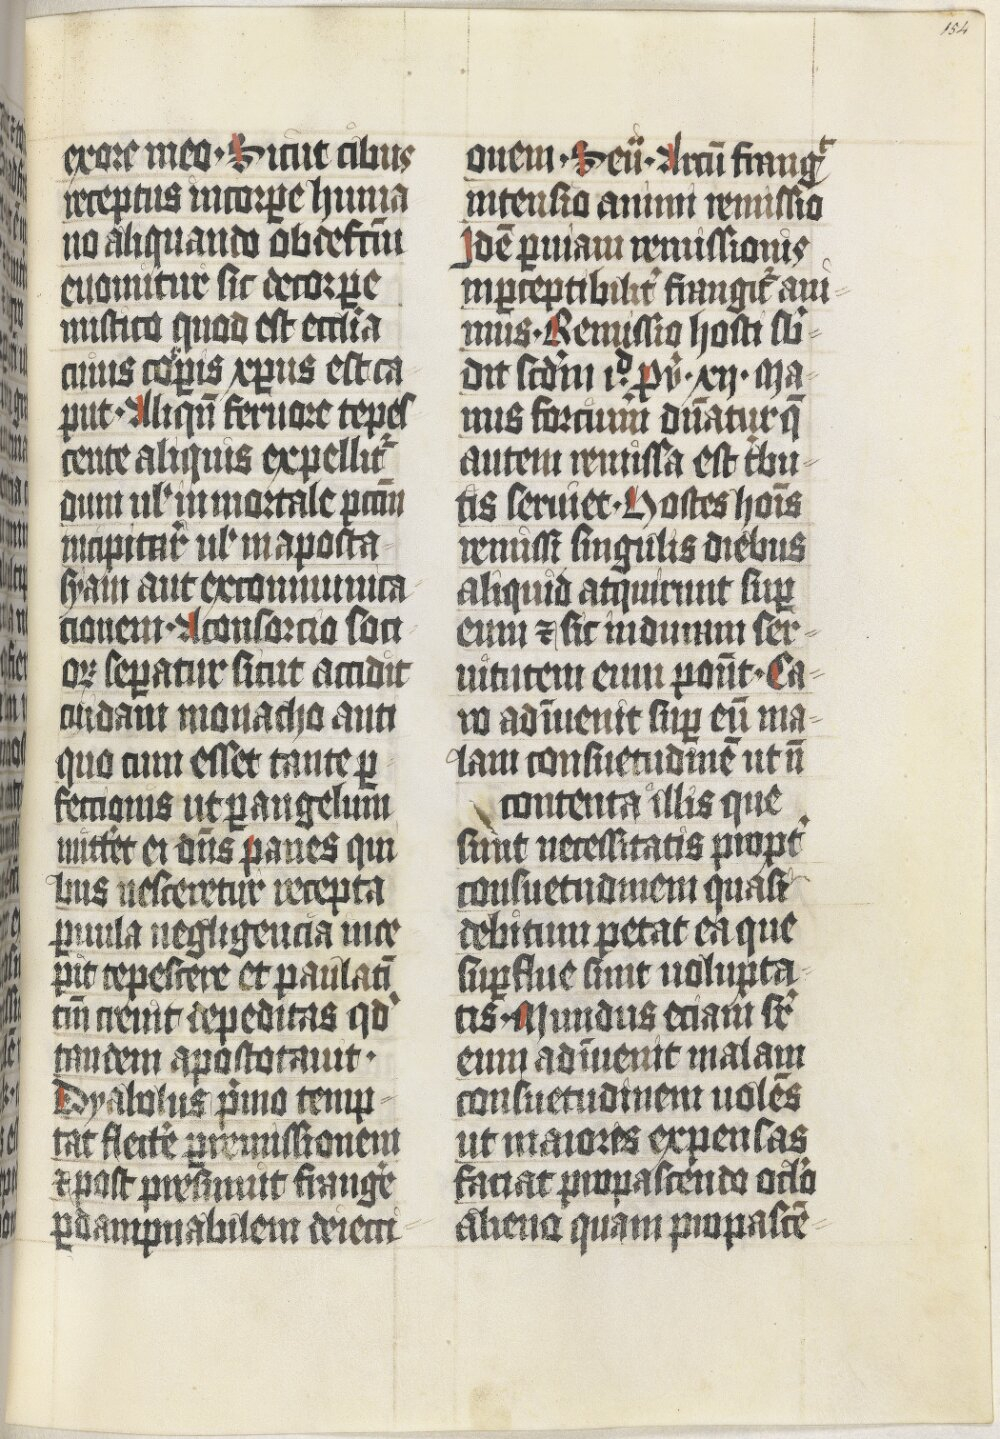 154
exore meo. Sicut cibus
receptus in corꝑe huma
no aliquando ob defctū
euomitur sic de corꝑe
mistico quod est ecclīa
cuius corꝑis xp̄us est ca
put. Aliqn̄ feruore tepes
cente aliquis expellit᷑
dum ul' in mortale pctm̄
incipitat᷑ ul' in aposta
syam aut excommunica
cionem. A consorcio soci
oꝝ seꝑatur sicut accidit
cuidam monacho anti
quo cum esset tante ꝑ
fectionis ut ꝑ angelum
mitt'et ei dn̄s panes qui
bus uesceretur recepta
ꝑuula negligencia ince
pit tepescere et paulatī
tm̄ creuit tepeditas qd'
tandem apostotauit.
Dyabolus p'mo temp
tat flect'e ꝑ remissionem
⁊ post presumit frang'e
ꝑ dampnabilem deiecti
onem. Seū. Arcū frangᷓ
intensio animi remissio
Idē ꝑ uiam remissionis
inꝑceptibilit' frangit᷑ ani
mus. Remissio hosti sb'
dit scd'm id. pu'. xij. Ma
nus forcium dn̄atur q̄
autem remissa est t'bu
tis seruiet. Hostes hoīs
remissi singulis diebus
aliquid acquirunt suꝑ
eum ⁊ sic in duram ser
uitutem eum ponūt. Ca
ro adīuenit suꝑ eū ma
lam consuetudinē ut n̄
contenta illis que
sunt necessitatis propt'
consuetudinem quasi
debitum petat ea que
suꝑflue sunt uolupta
tis. Mundus eciam sr'
eum adīuenit malam
consuetudinem uolēs
ut maiores expensas
faciat pro pascendo oclo
alieno quam pro pascē